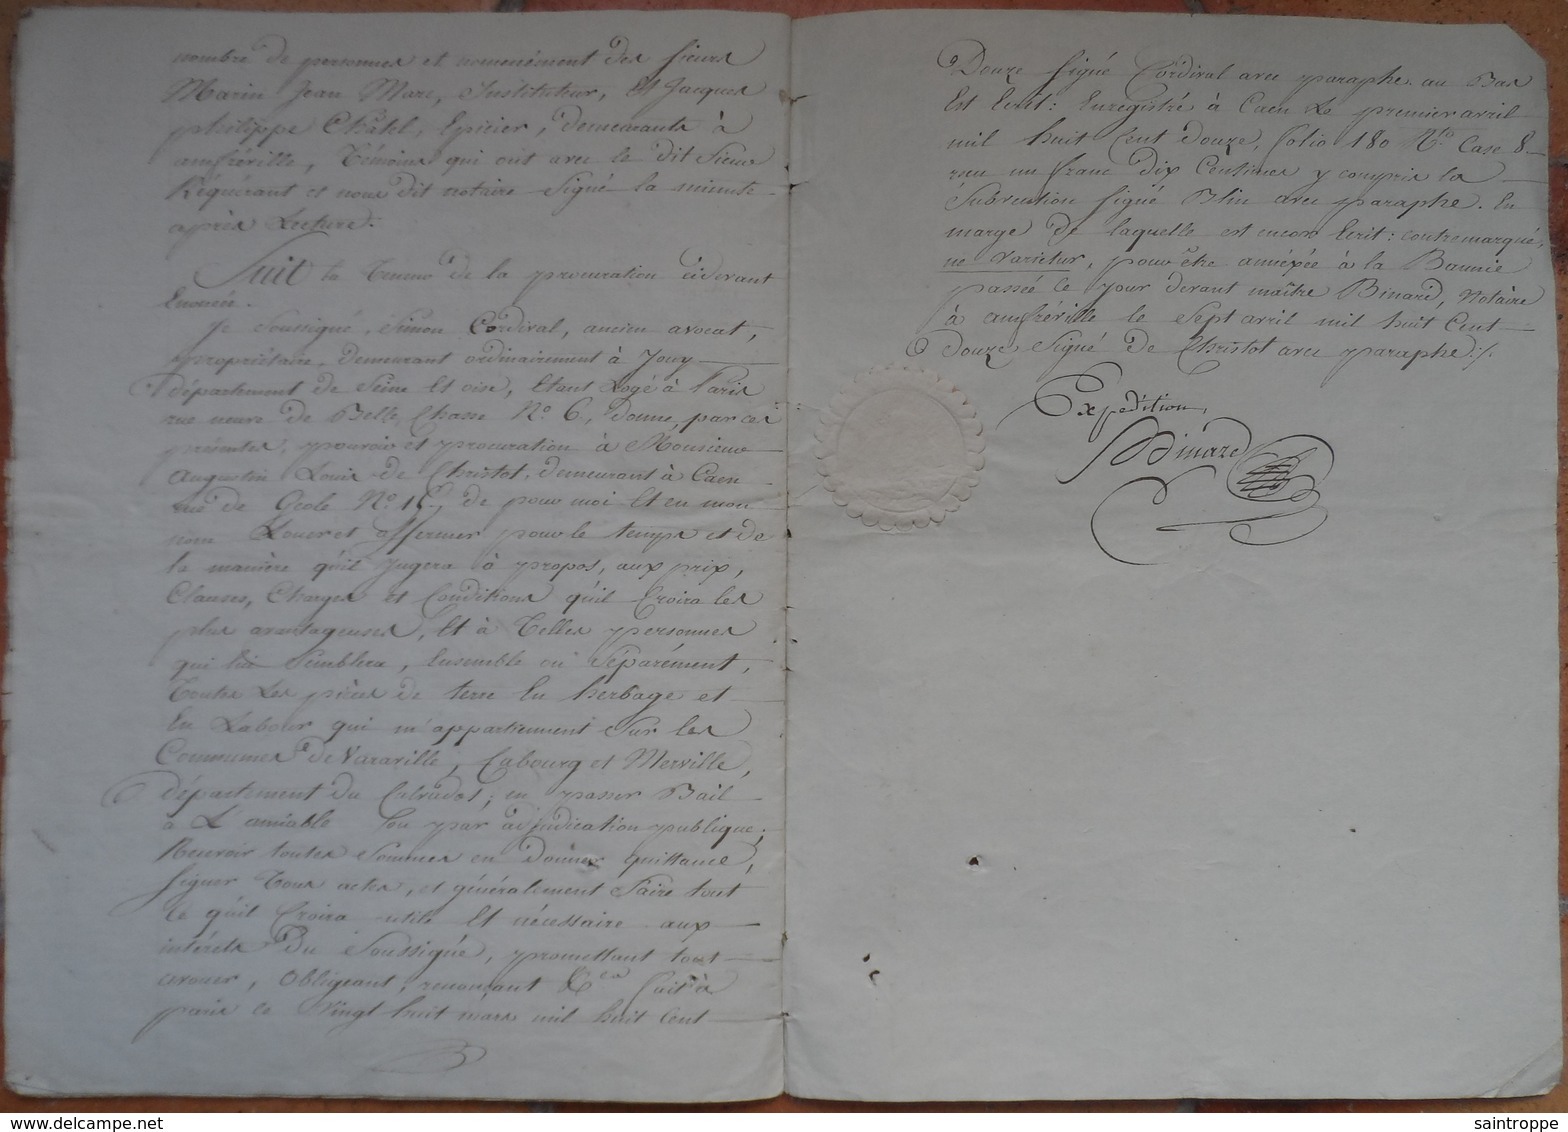 nombre de personnes et nommément des sieurs
Marin Jean Marc, Instituteur, et Jacques
philippe Châtel, Epicier, demeurants à
amfréville, Témoins qui ont avec le dit Sieur
Réquérant et nous dit notaire Signé la minute
après Lecture.
Suit la Teneur de la procuration cidevant
Enoncée.
Je Soussigné, Simon Cordival, ancien avocat,
propriétaire, demeurant ordinairement à Jouy
département de Seine Et oise, Etant Logé à Paris
rue neuve de Belle Chasse No. 6, donne, par ces
présentes, pouvoir et procuration à Monsieur
Augustin Louis de Christot, demeurant à Caen
rue de Geole No. de pour moi Et en mon
nom Louer et affermer pour le temps et de
la manière qu'il Jugera à propos, aux prix,
Clauses, Charges et Conditions qu'il Croira les
plus avantageuses, Et à Telles personnes
qui lui Semblera, Ensemble ou Séparément,
Toutes Les pièces de terre En herbage et
En Labour qui m'appartiennent Sur les
Communes de Varaville, Cabourg et Merville,
département du Calvados; en passer Bail
à L'amiable ou par adjudication publique;
Recevoir toutes Sommes en Donner quittance,
Signer Tous actes, et généralement Faire tout
Ce qu'il Croira utile Et nécessaire aux
intérets Du Soussigné, promettant tout
avouer, obligeant, renonçant &ca fait à
paris ce Vingt huit mars mil huit Cent
Douze Signé Cordival avec paraphe. au Bas
Est Ecrit: Enregistré à Caen Le premier avril
mil huit Cent douze, folio 180 Vto. Case 8
reçu un franc Dix Centimes y compris la
Subvention Signé Blin avec paraphe. En
marge de laquelle est encore Ecrit: contremarqué
ne Varietur, pour être annexée à la Bannie
passée ce jour devant maître Binard, Notaire
à amfréville le Sept avril mil huit Cent
douze Signé de Christot avec paraphe ./.
Expédition,
Binard
saintroppe